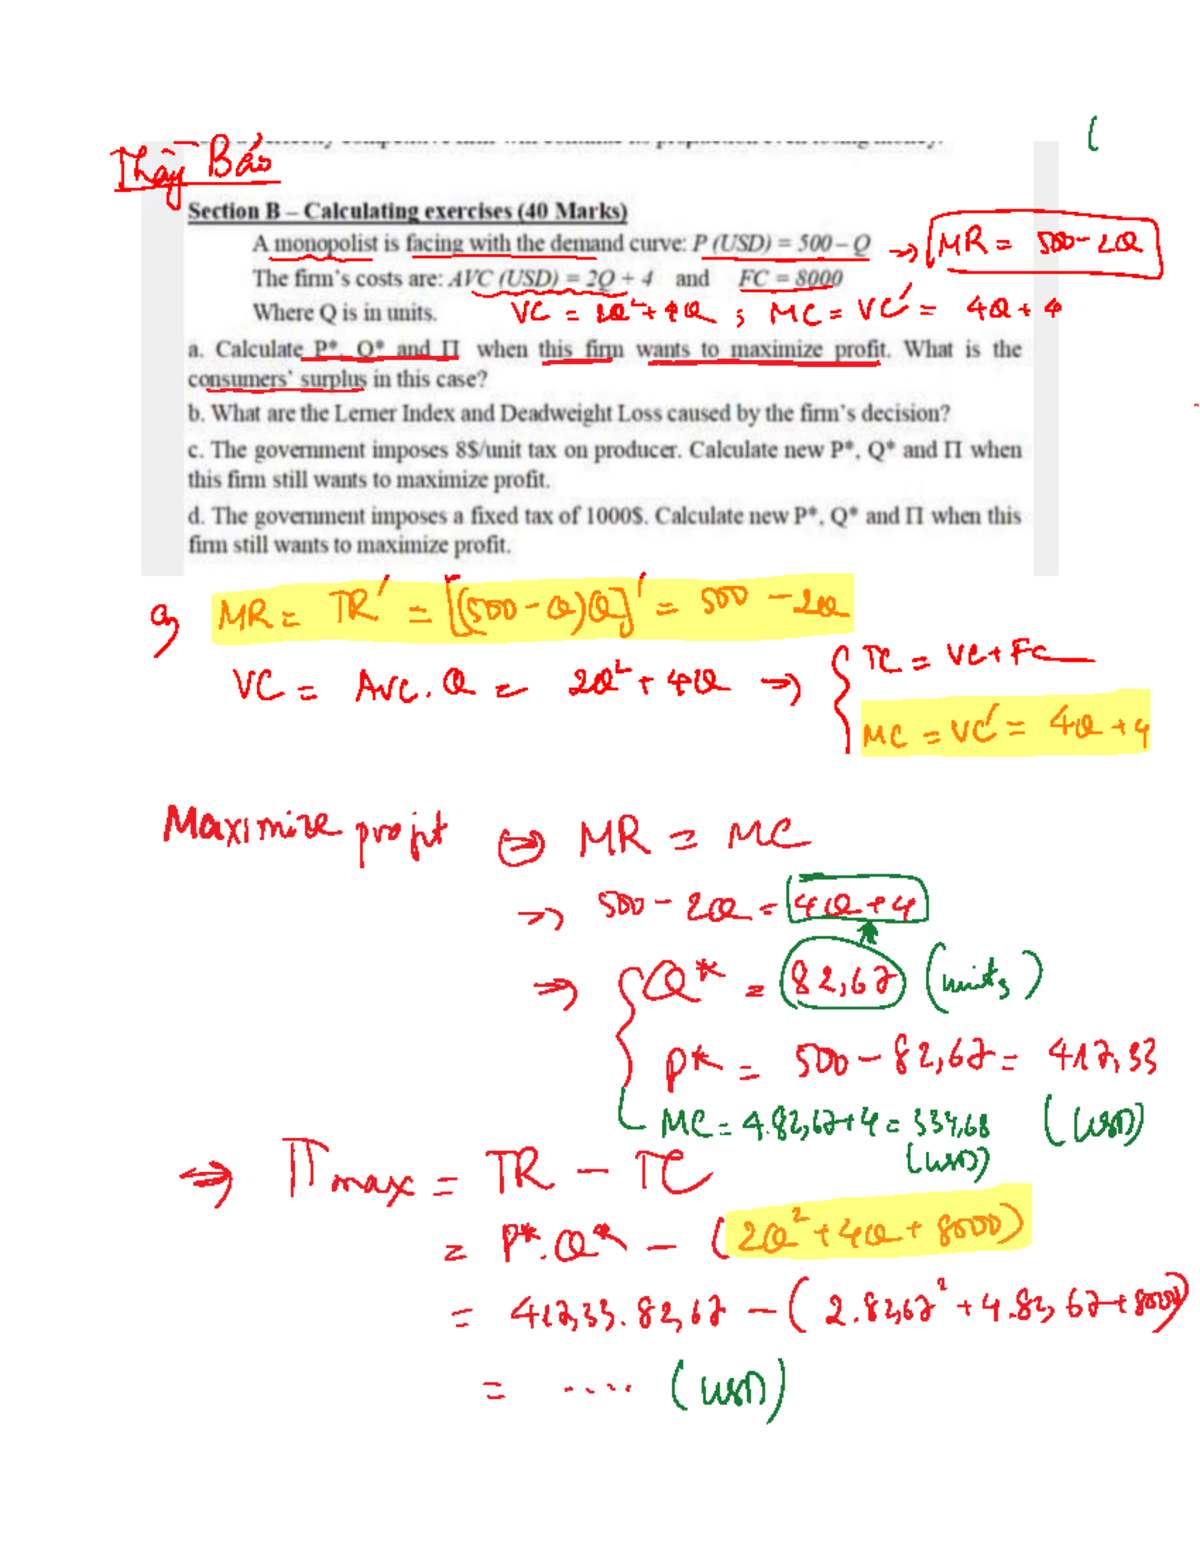 Thầy Bảo
Section B – Calculating exercises (40 Marks)
A monopolist is facing with the demand curve: P (USD) = 500 – Q → MR = 500 - 2Q
The firm's costs are: AVC (USD) = 2Q + 4 and FC = 8000
Where Q is in units. VC = 2Q² + 4Q ; MC = VC' = 4Q + 4
a. Calculate P*, Q* and Π when this firm wants to maximize profit. What is the
consumers' surplus in this case?
b. What are the Lerner Index and Deadweight Loss caused by the firm's decision?
c. The government imposes 8$/unit tax on producer. Calculate new P*, Q* and Π when
this firm still wants to maximize profit.
d. The government imposes a fixed tax of 1000$. Calculate new P*, Q* and Π when this
firm still wants to maximize profit.
a, MR = TR' = [(500 - Q)Q]' = 500 - 2Q
VC = AVC . Q = 2Q² + 4Q → { TC = VC + FC
MC = VC' = 4Q + 4
Maximize profit ⇔ MR = MC
→ 500 - 2Q = 4Q + 4
⇒ { Q* = 82,67 (units)
P* = 500 - 82,67 = 417,33
MC = 4.82,67 + 4 = 334,68 (USD)
(USD)
⇒ Π max = TR - TC
= P*. Q* - (2Q² + 4Q + 8000)
= 417,33. 82,67 - (2.82,67² + 4.82,67 + 8000)
= .... (USD)